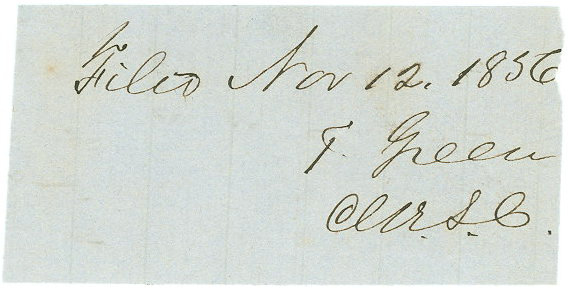 Filed Nov 12, 1856
T. Green
Clk. S. C.